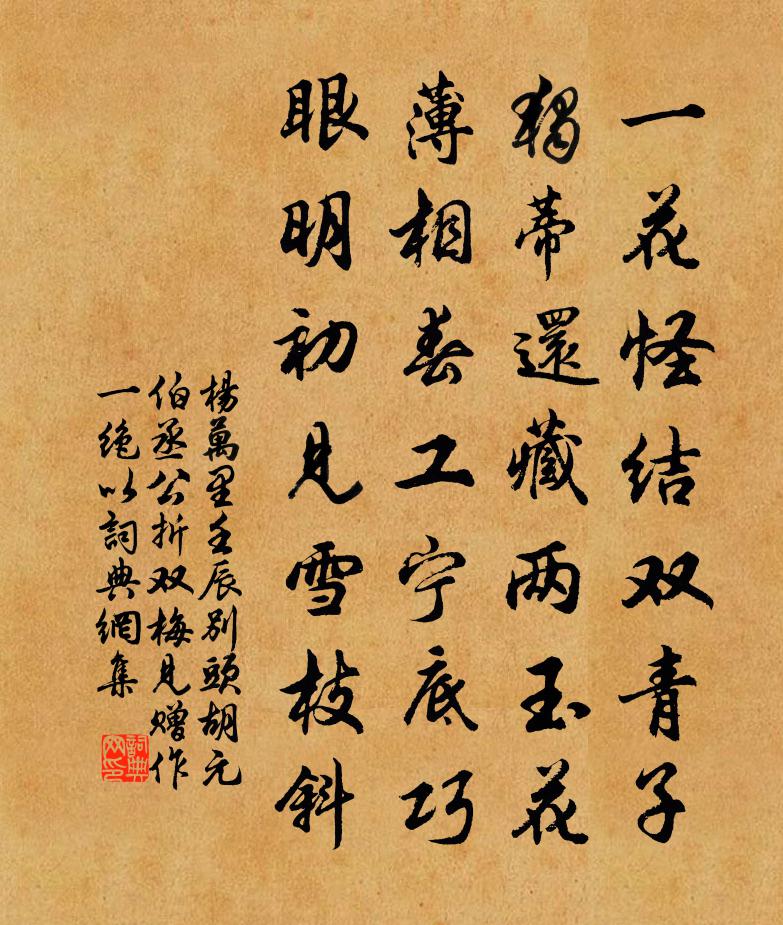 一花怪结双青子
独蒂還藏两玉花
薄相春工宁底巧
眼明初見雪枝斜
楊萬里壬辰别頭胡元
伯丞公折双梅見赠作
一绝以詞典網集
詞典网印